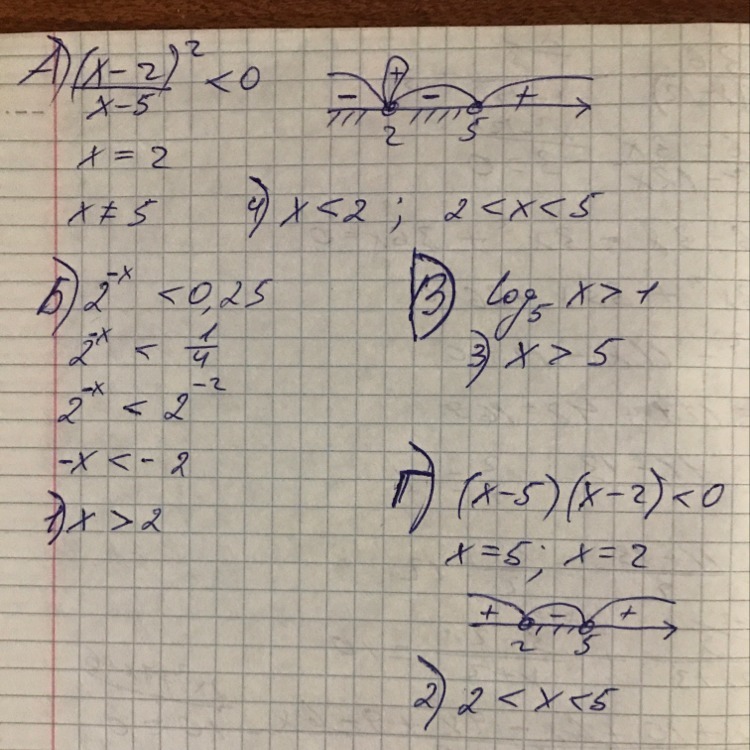 А) (x-2)² / x-5 < 0
- + - +
2 5
x = 2
x ≠ 5
4) x < 2 ; 2 < x < 5
Б) 2^-x < 0,25
2^-x < 1/4
2^-x < 2^-2
-x < - 2
1) x > 2
В) log₅ x > 1
3) x > 5
Г) (x-5)(x-2) < 0
x = 5; x = 2
+ - +
2 5
2) 2 < x < 5